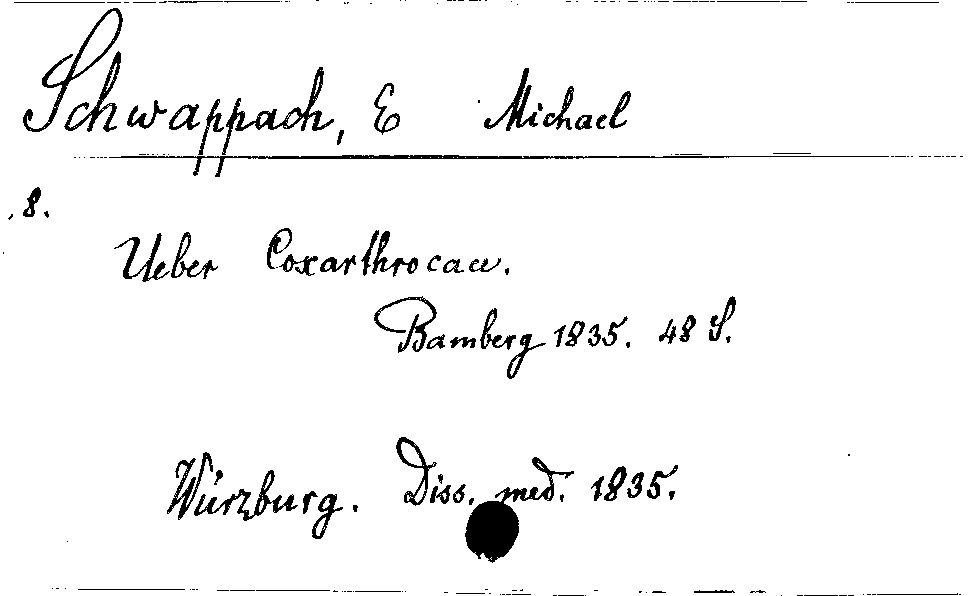 Schwappach, E Michael
8.
Ueber Coxarthrocace.
Bamberg 1835. 48 S.
Würzburg. Diss. med. 1835.